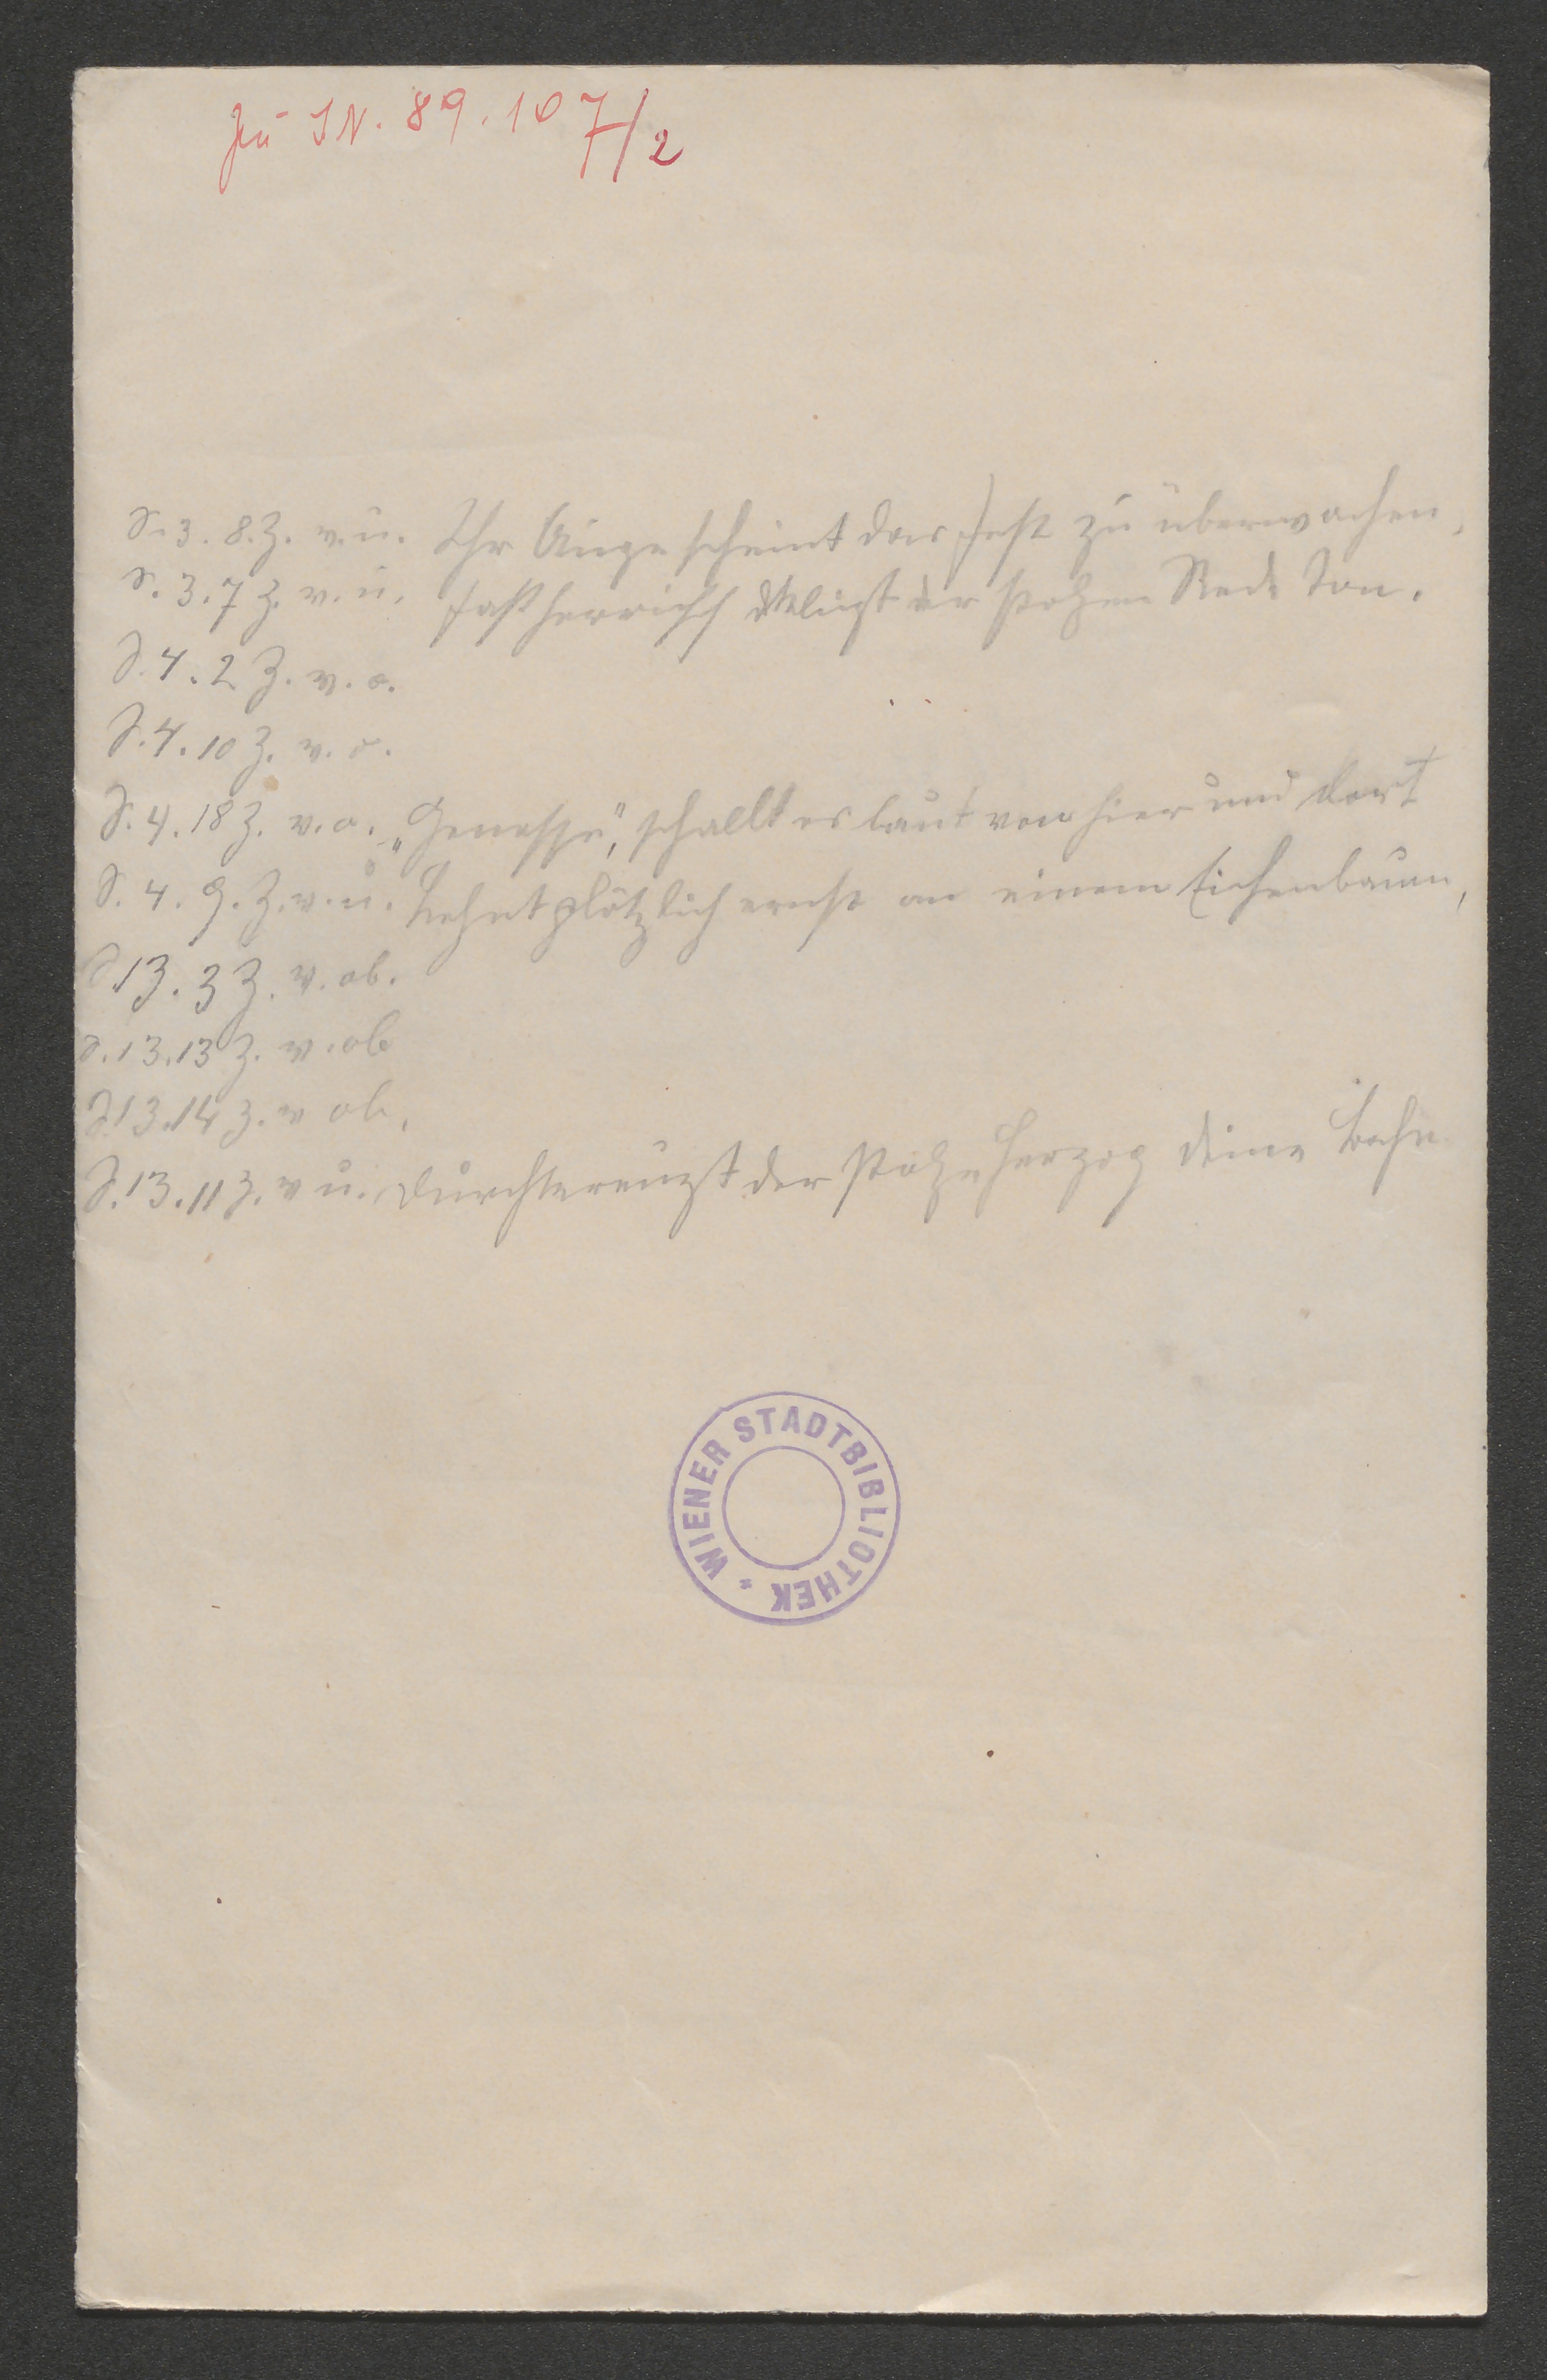 Zu I.N. 89.107/2
S. 3. 8. Z. v. u. Ihr Auge scheint das Fest zu überwachen,
S. 3. 7 Z. v. u. Fast herrisch klingt der stolzen Rede Ton.
S. 4. 2 Z. v. o.
S. 4. 10 Z. v. o.
S. 4. 18 Z. v. o. „ schallt es laut von hier und dort
S. 4. 9. Z. v. u. Lehnt plötzlich ernst an einem Eichenbaum,
S. 13. 3 Z. v. ob.
S. 13. 13 Z. v. ob
S. 13. 14 Z. v ob.
S. 13. 11 Z. v u. Durchkreuzt der stolze Herzog deine Bahn
WIENER STADTBIBLIOTHEK *